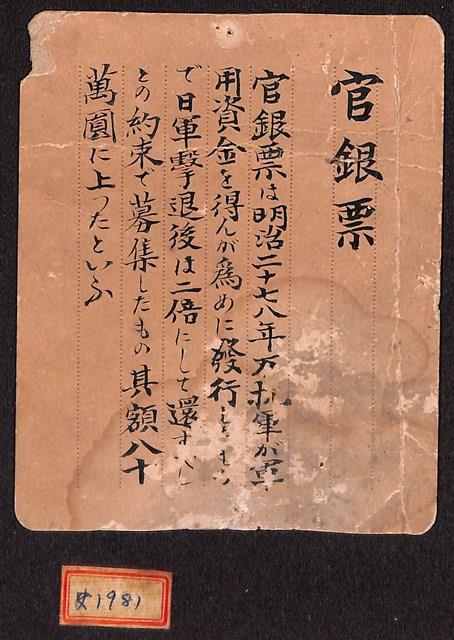 官銀票
官銀票は明治二十七八年 軍が軍
用資金を得んが爲めに發行し
で日軍擊退後は二倍にして還すべし
との約束で募集したもの其額八十
萬圓に上つたといふ
史1981